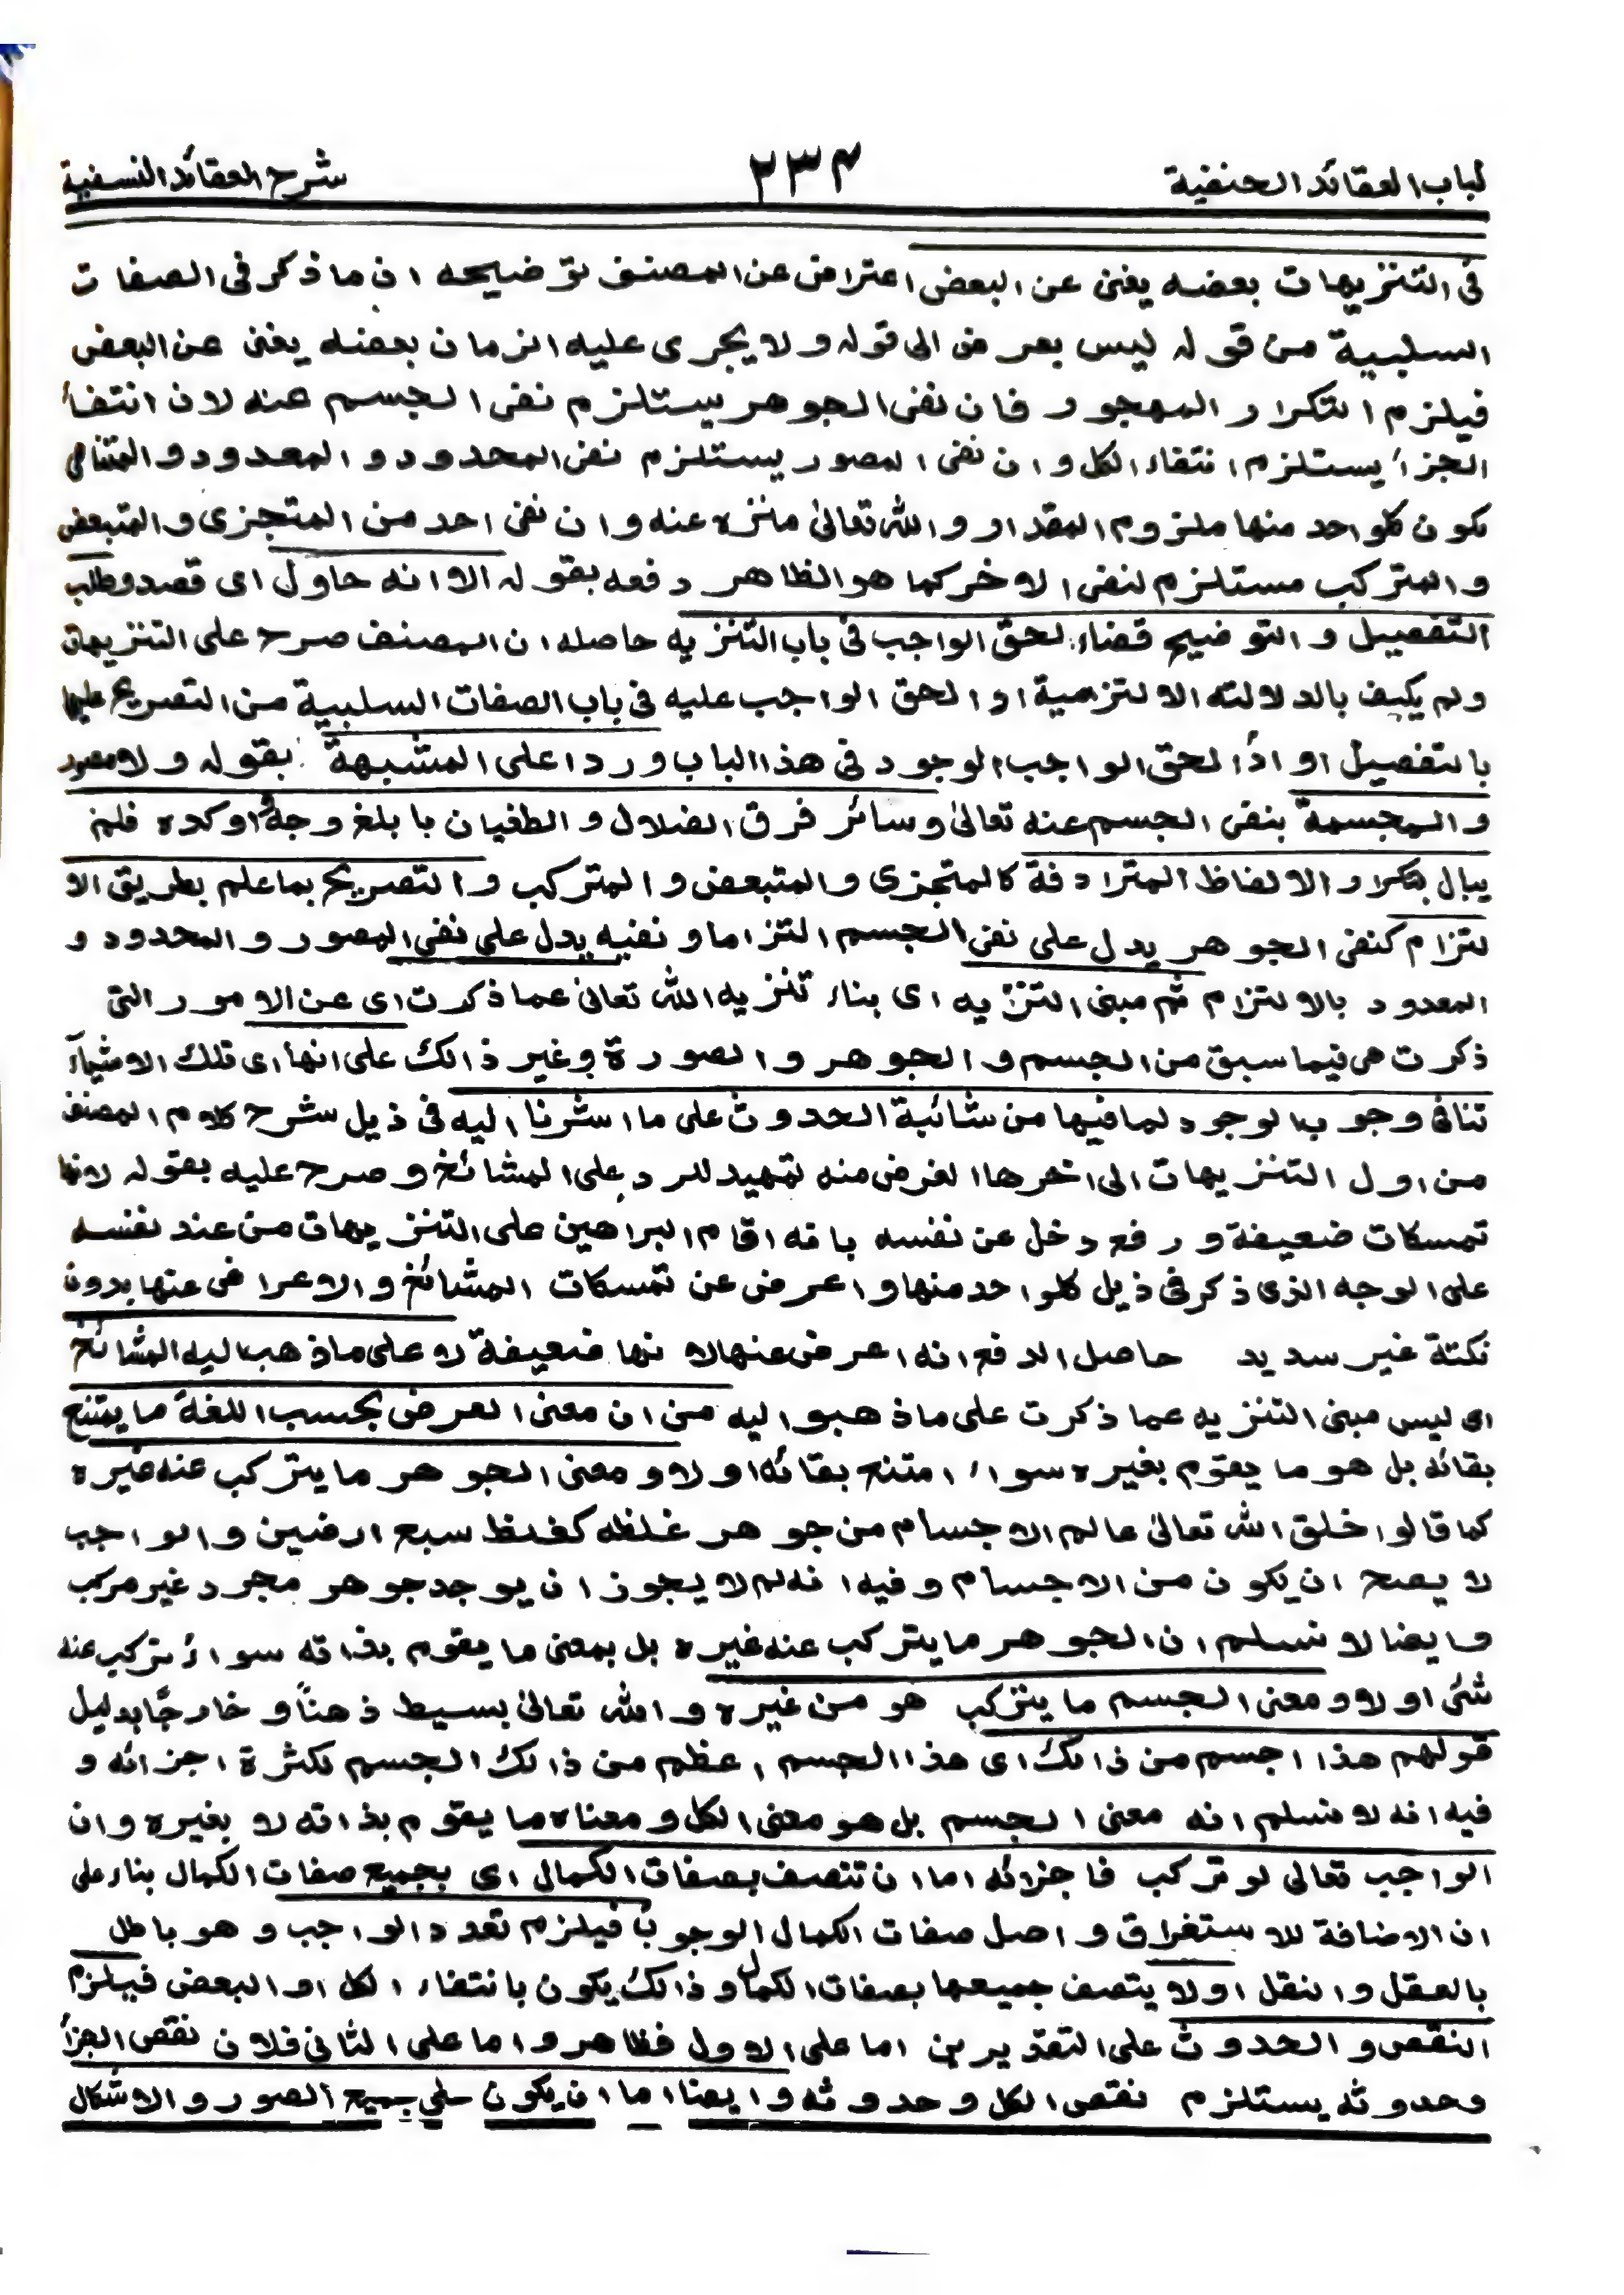 لباب العقائد الحنفية ٢٣٤ شرح العقائد النسفية
فى التنزيهات بعضه يغنى عن البعض اعتراض عن المصنف توضيحه ان ما ذكر فى الصفات
السلبية من قوله ليس بعرض الى قوله ولا يجرى عليه الزمان بعضه يغنى عن البعض
فيلزم التكرار المهجور فان نفى الجوهر يستلزم نفى الجسم عنه لان انتفأ
الجزأ يستلزم انتفاء الكل وان نفى المصور يستلزم نفى المحدود و المعدود و المتناهى
لكون كلواحد منها ملزوم المقدار و الله تعالىٰ منزه عنه وان نفى احد من المتجزى و المتبعض
و المتركب مستلزم لنفى الاخر كما هو الظاهر دفعه بقوله الا انه حاول اى قصد وطلب
التفصيل و التوضيح قضاء لحق الواجب فى باب التنزيه حاصله ان المصنف صرح على التنزيهات
ولم يكيف بالدلالته الالتزمية او الحق الواجب عليه فى باب الصفات السلبية من التصريح عليها
بالتفصيل او اداً لحق الواجب الوجود فى هذا الباب وردا على المشبهة بقوله ولا مصور
و المجسمة بنفى الجسم عنه تعالىٰ وسائر فرق الضلال و الطغيان بابلغ وجه واوكده فلم
يبال بتكرار الالفاظ المترادفة كالمتجزى و المتبعض و المتركب و التصريح بما علم بطريق الا
لتزام كنفى الجوهر يدل على نفى الجسم التزاما و نفيه يدل على نفى المصور و المحدود و
المعدود بالالتزام ثم مبنى التنزيه اى بناء تنزيه الله تعالىٰ عما ذكرت اى عن الامور التى
ذكرت هى فيما سبق من الجسم و الجوهر و الصورة وغير ذالك على انها اى تلك الاشيآء
تنافى وجوب الوجود لما فيها من شائبة الحدوث على ما اشرنا اليه فى ذيل شرح كلام المصنف
من اول التنزيهات الى اخرها الغرض منه تمهيد للرد على المشائخ و صرح عليه بقوله لانها
تمسكات ضعيفة و رفع دخل عن نفسه بانه اقام البراهين على التنزيهات من عند نفسه
على الوجه الذى ذكر فى ذيل كلواحد منها و اعرض عن تمسكات المشائخ و الاعراض عنها بدون
نكتة غير سديد حاصل الدفع انه اعرض عنها لانها ضعيفة لا على ما ذهب اليه المشائخ
اى ليس مبنى التنزيه عما ذكرت على ما ذهبوا اليه من ان معنى العرض بحسب اللغة ما يمتنع
بقائه بل هو ما يقوم بغيره سواء امتنع بقائه اولا و معنى الجوهر ما يتركب عنه غيره
كما قالوا خلق الله تعالىٰ عالم الاجسام من جوهر غلظه كغلظ سبع ارضين و الواجب
لا يصح ان يكون من الاجسام و فيه انه لم لا يجوز ان يوجد جوهر مجرد غير مركب
و ايضا لا نسلم ان الجوهر ما يتركب عنه غيره بل بمعنى ما يقوم بذاته سواءٌ تركب عنه
شئى اولا و معنى الجسم ما يتركب هو من غيره و الله تعالىٰ بسيط ذهناً و خارجًا بدليل
قولهم هذا اجسم من ذالك اى هذا الجسم اعظم من ذالك الجسم لكثرة اجزائه و
فيه انه لا نسلم انه معنى الجسم بل هو معنى الكل و معناه ما يقوم بذاته لا بغيره وان
الواجب تعالى لو تركب فاجزائه اما ان تتصف بصفات الكمال اى بجميع صفات الكمال بناء على
ان الاضافة للاستغراق و اصل صفات الكمال الوجوب فيلزم تعدد الواجب و هو باطل
بالعقل و النقل اولا يتصف جميعها بصفات الكمال و ذالك يكون بانتفاء الكل او البعض فيلزم
النقص و الحدوث على التقديرين اما على الاول فظاهر و اما على الثانى فلان نقص الجزأ
وحدوثه يستلزم نقص الكل وحدوثه و ايضا اما ان يكون على جميع الصور و الاشكال